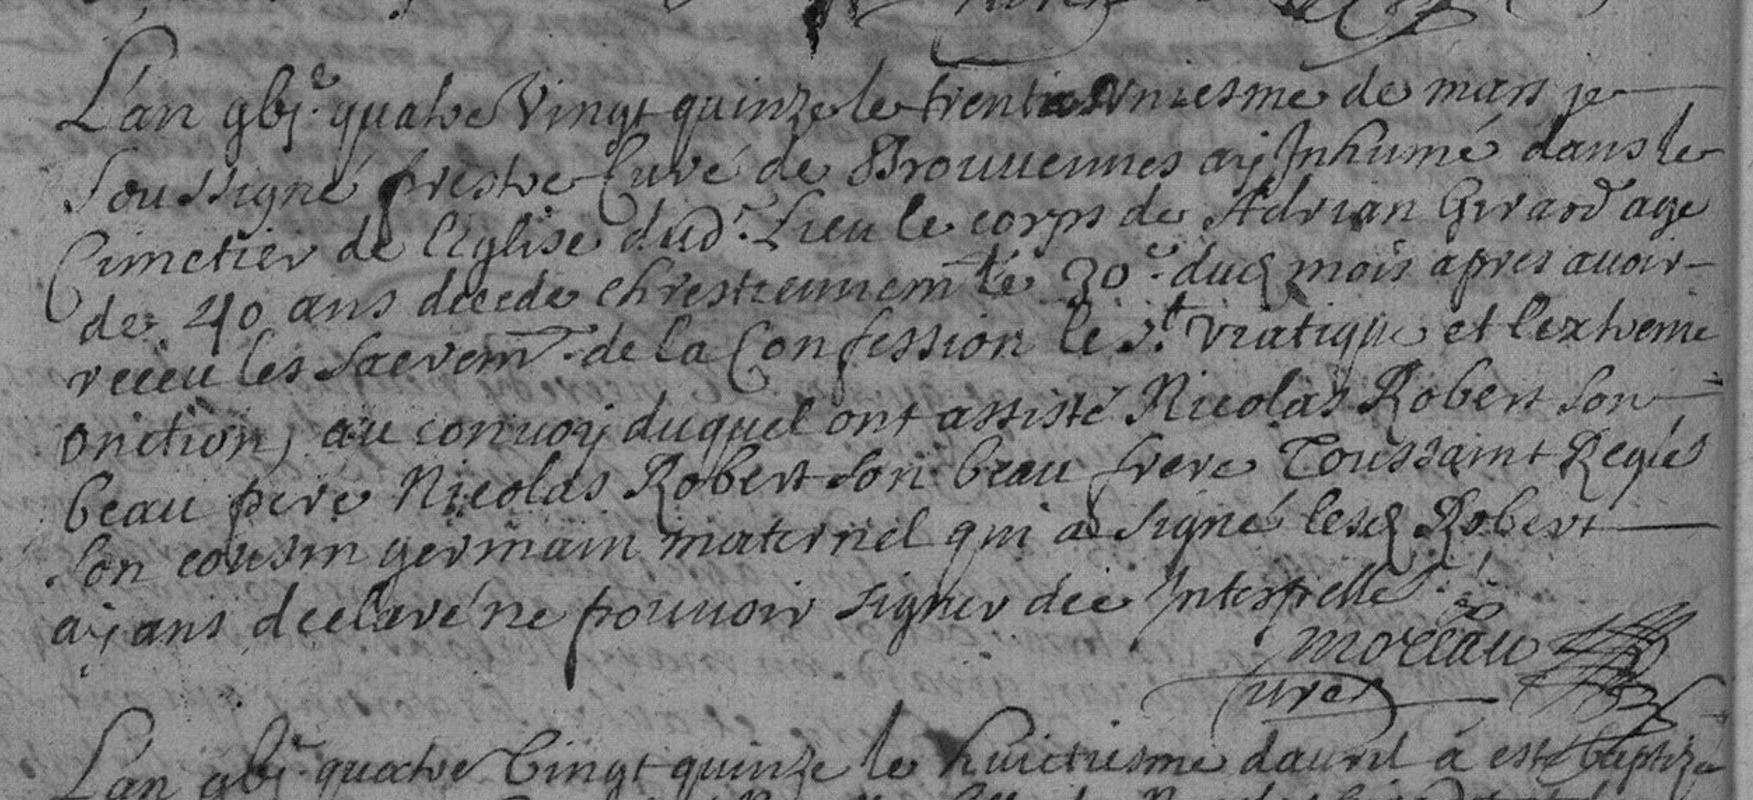 L'an gbj.c quatre Vingt quinze le trente Vniesme de mars je
soussigné prestre Curé de Brouuennes aÿ Inhumé dans le
Cimetier de l'Eglise dud.t Lieu le corps de Adrian Girard age
de 40 ans decede chrestiennem.t le 30.e dud mois apres auoir
receu les sacrem.t de la Confession le s.t Viatique et l'extreme
onction, au conuoÿ duquel ont assisté Nicolas Robert son
beau pere Nicolas Robert son beau frere Toussaint
son cousin germain maternel qui a signé lesd Robert
aÿans declaré ne pouuoir signer de Interpellé.
moreau
Curé
L'an gbj.c quatre Vingt quinze le huictiesme dauril a esté baptizé